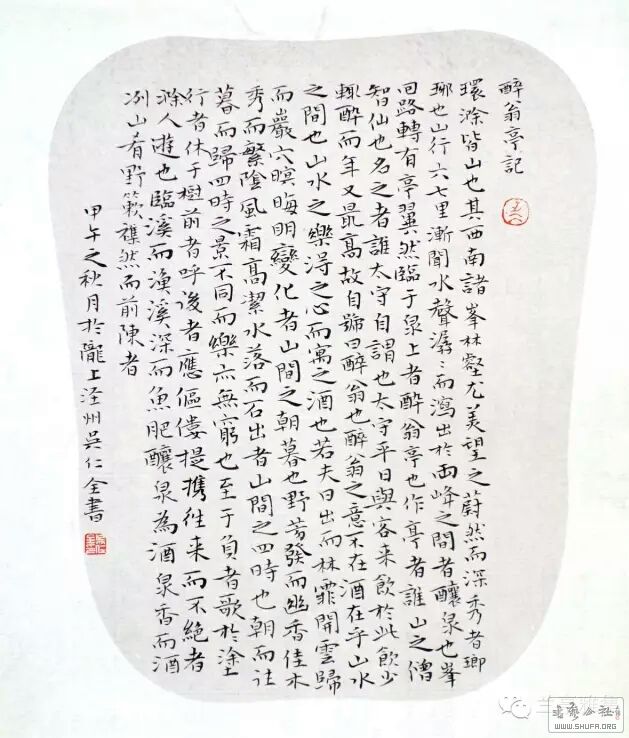 醉翁亭記
環滁皆山也其西南諸峯林壑尤美望之蔚然而深秀者瑯
琊也山行六七里漸聞水聲潺〻而瀉出於兩峰之間者釀泉也峯
回路轉有亭翼然臨于泉上者醉翁亭也作亭者誰山之僧
智仙也名之者誰太守自謂也太守平日與客来飲於此飲少
輒醉而年又最高故自號曰醉翁也醉翁之意不在酒在乎山水
之間也山水之樂淂之心而寓之酒也若夫日出而林霏開雲歸
而巖穴暝晦明變化者山間之朝暮也野芳發而幽香佳木
秀而繁陰風霜高潔水落而石出者山間之四時也朝而往
暮而歸四時之景不同而樂亦無窮也至于負者歌於塗
行者休于樹前者呼後者應傴僂提携往来而不絶者
滁人遊也臨溪而漁溪深而魚肥釀泉為酒泉香而酒
冽山肴野簌襍然而前陳者
甲午之秋月於隴上泾州吳仁全書
WWW.SHUFA.ORG